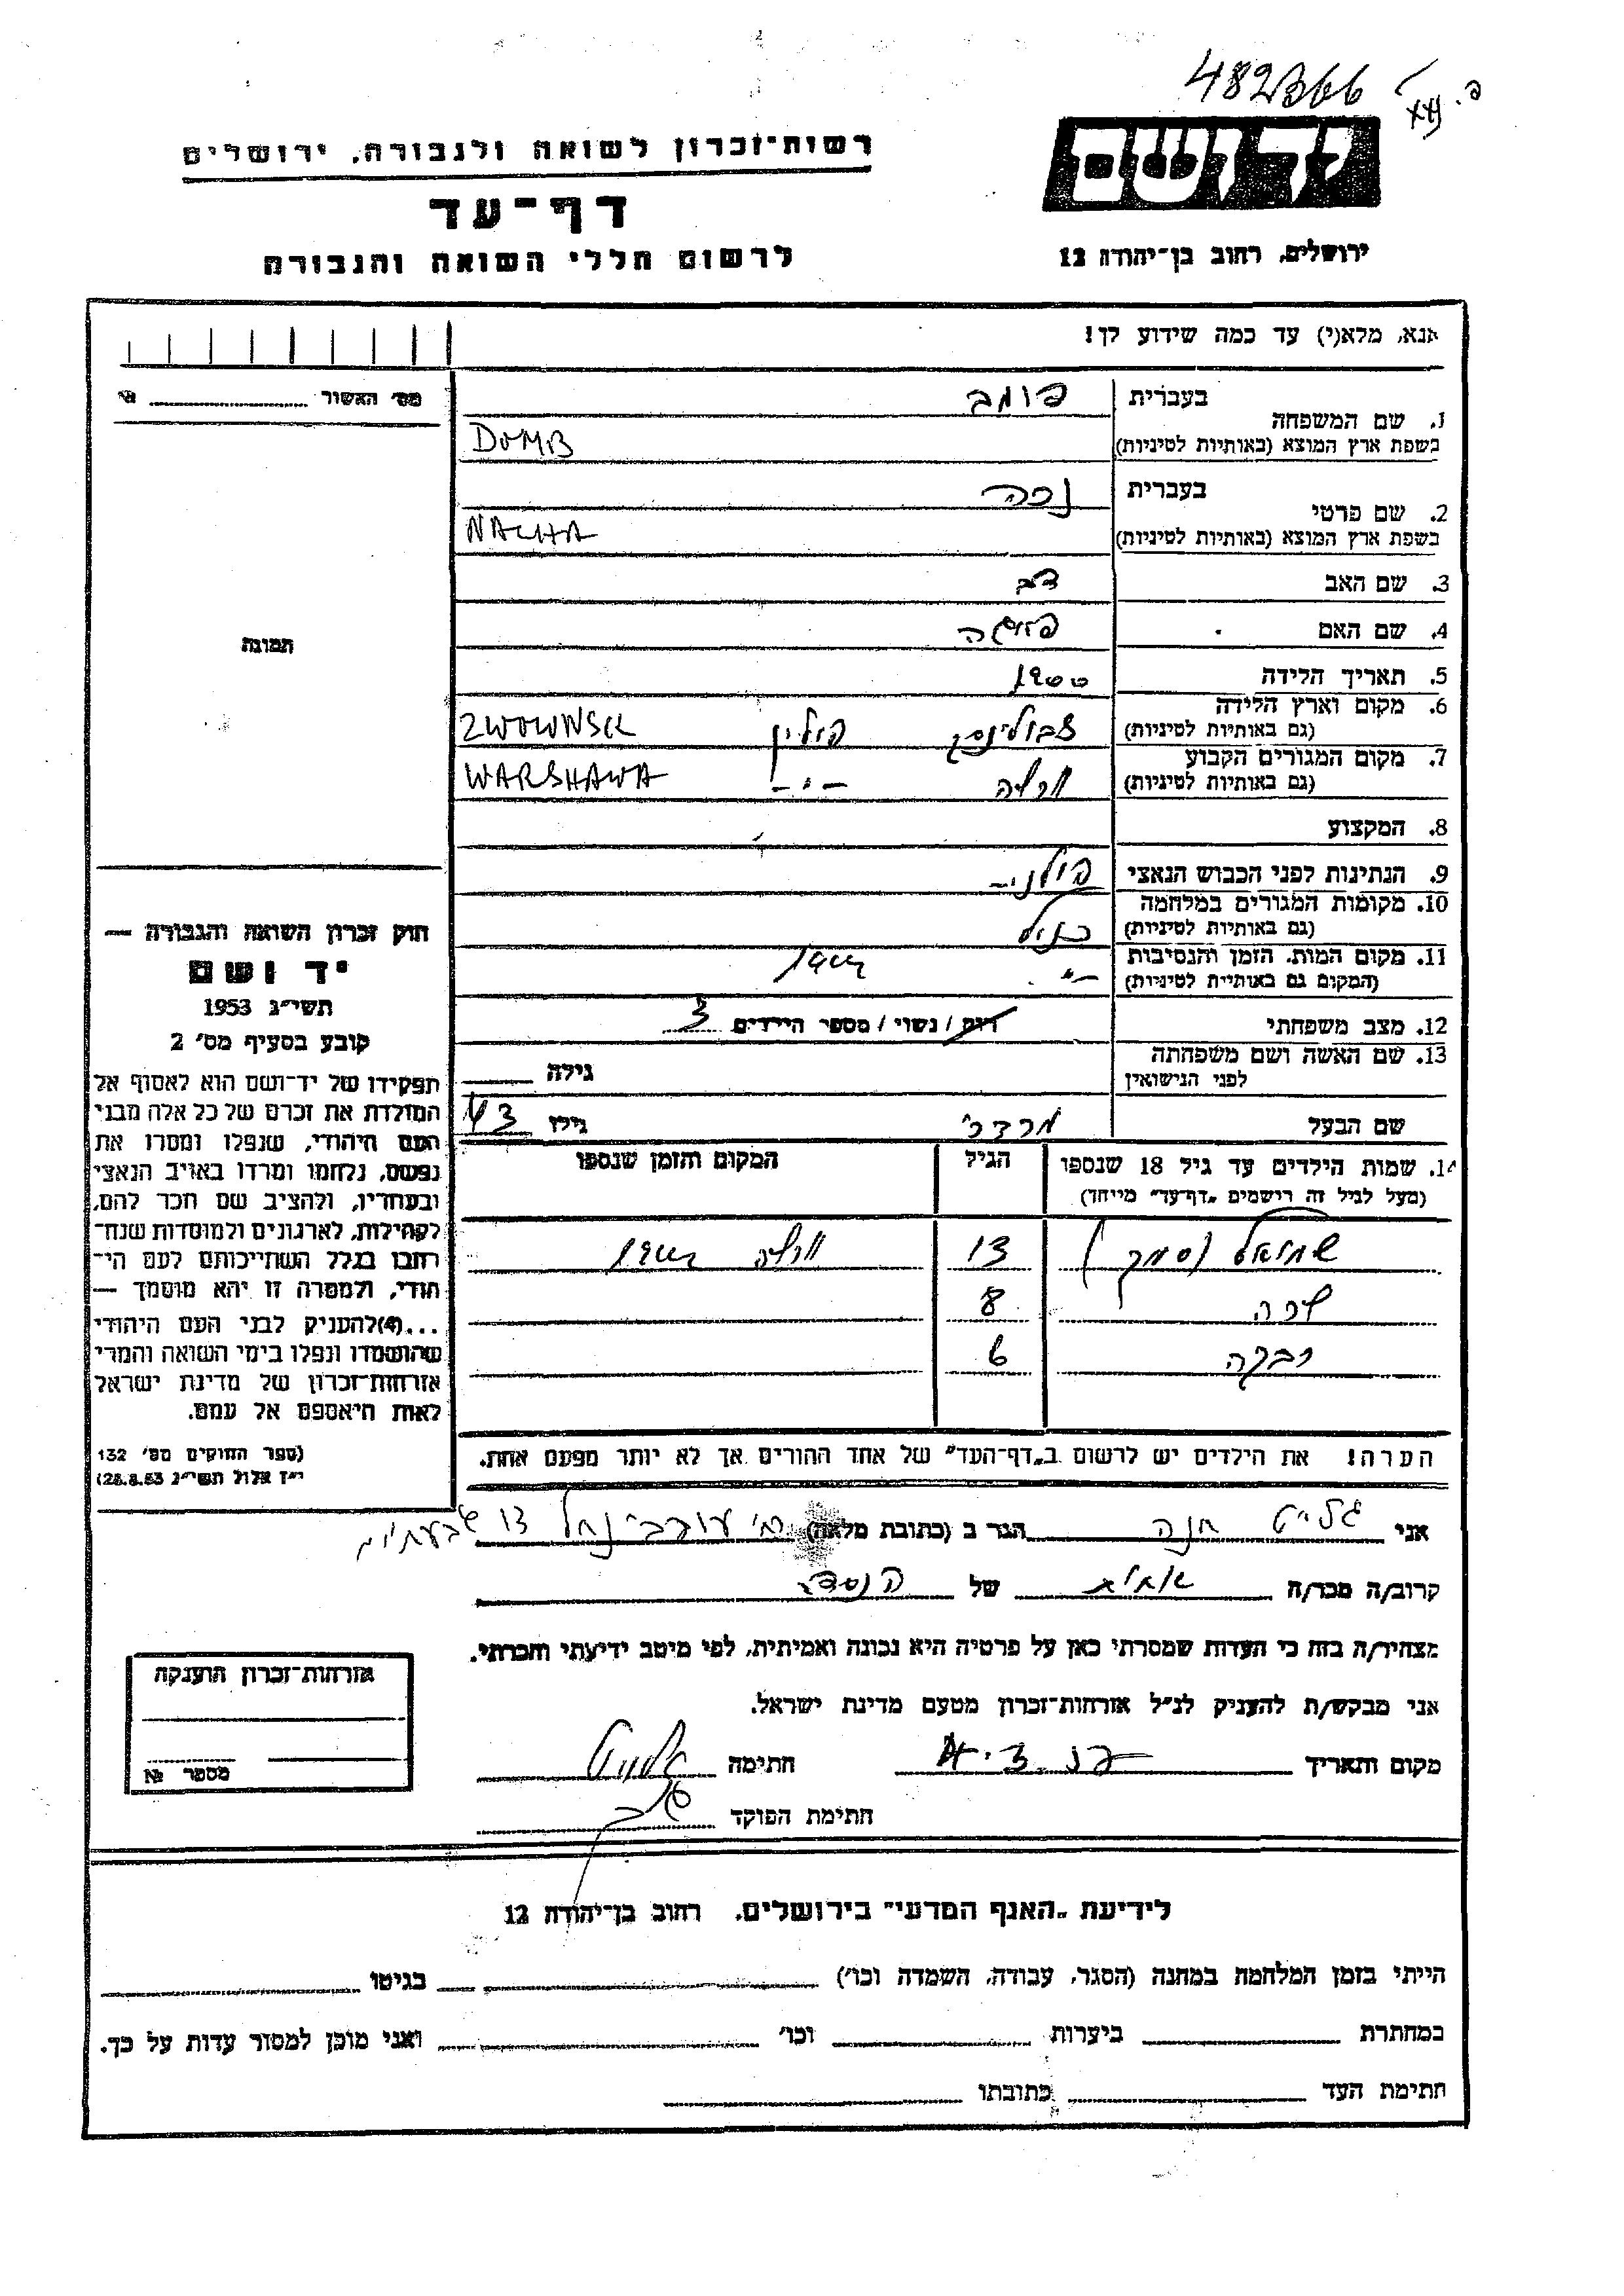 482366
יד ושם
רשות-זכרון לשואה ולגבורה, ירושלים
דף-עד
לרשום חללי השואה והגבורה
ירושלים, רחוב בן-יהודה 12
אנא, מלא(י) עד כמה שידוע לך!
מס׳ האשור №
1. שם המשפחה
בעברית דומב
בשפת ארץ המוצא (באותיות לטיניות) DOMB
2. שם פרטי
בעברית נכה
בשפת ארץ המוצא (באותיות לטיניות) NACHA
3. שם האב דב
4. שם האם
5. תאריך הלידה 1900
6. מקום וארץ הלידה
(גם באותיות לטיניות) פולין
7. מקום המגורים הקבוע
(גם באותיות לטיניות) ורשה -״- WARSHAWA
8. המקצוע
9. הנתינות לפני הכבוש הנאצי פולני-
10. מקומות המגורים במלחמה
(גם באותיות לטיניות) כנ״ל
11. מקום המות, הזמן והנסיבות
(המקום גם באותיית לטיניות) -״-
12. מצב משפחתי רווק / נשוי / מספר הילדים 3
13. שם האשה ושם משפחתה
לפני הנישואין גילה
שם הבעל מרדכי גילו 43
14. שמות הילדים עד גיל 18 שנספו
(מעל לגיל זה רישמים „דף-עד״ מייחד)
הגיל
המקום והזמן שנספו
שמואל 13 ורשה
8
רבקה 6
הערה! את הילדים יש לרשום ב„דף-העד״ של אחד ההורים אך לא יותר מפעם אחת.
תמונה
חוק זכרון השואה והגבורה —
יד ושם
תשי״ג 1953
קובע בסעיף מס׳ 2
תפקידו של יד-ושם הוא לאסוף אל
המולדת את זכרם של כל אלה מבני
העם היהודי, שנפלו ומסרו את
נפשם, נלחמו ומרדו באויב הנאצי
ובעוזריו, ולהציב שם וזכר להם,
לקהילות, לארגונים ולמוסדות שנח-
רחבו בגלל השתייכותם לעם הי-
הודי, ולמטרה זו יהא מוסמך —
...(4)להעניק לבני העם היהודי
שהושמדו ונפלו בימי השואה והמרי
אזרחות-זכרון של מדינת ישראל
לאות היאספם אל עמם.
(ספר החוקים מס׳ 132
י״ז אלול תשי״ג 28.8.53)
אני חנה הגר ב (כתובת מלאה)
קרוב/ה מכר/ה של הנספה
מצהיר/ה בזה כי העדות שמסרתי כאן על פרטיה היא נכונה ואמיתית, לפי מיטב ידיעתי והכרתי.
אני מבקש/ת להעניק לנ״ל אזרחות-זכרון מטעם מדינת ישראל.
מקום ותאריך חתימה
חתימת הפוקד
אזרחות-זכרון הוענקה
מספר №
לידיעת „האנף המדעי״ בירושלים, רחוב בן-יהודה 12
הייתי בזמן המלחמה במחנה (הסגר, עבודה, השמדה וכו׳) בגיטו
במחתרת ביערות וכו׳ ואני מוכן למסור עדות על כך.
חתימת העד כתובתו